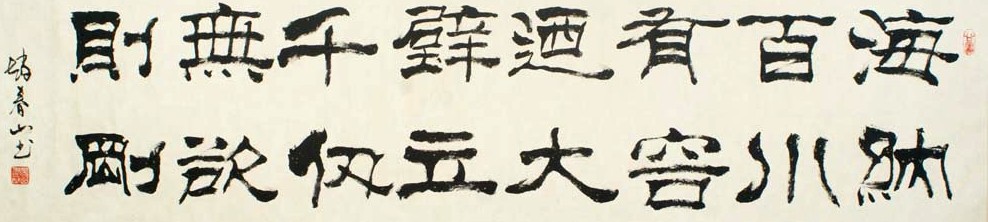 海納
百川
有容
迺大
壁立
千仞
無欲
則剛
春山书